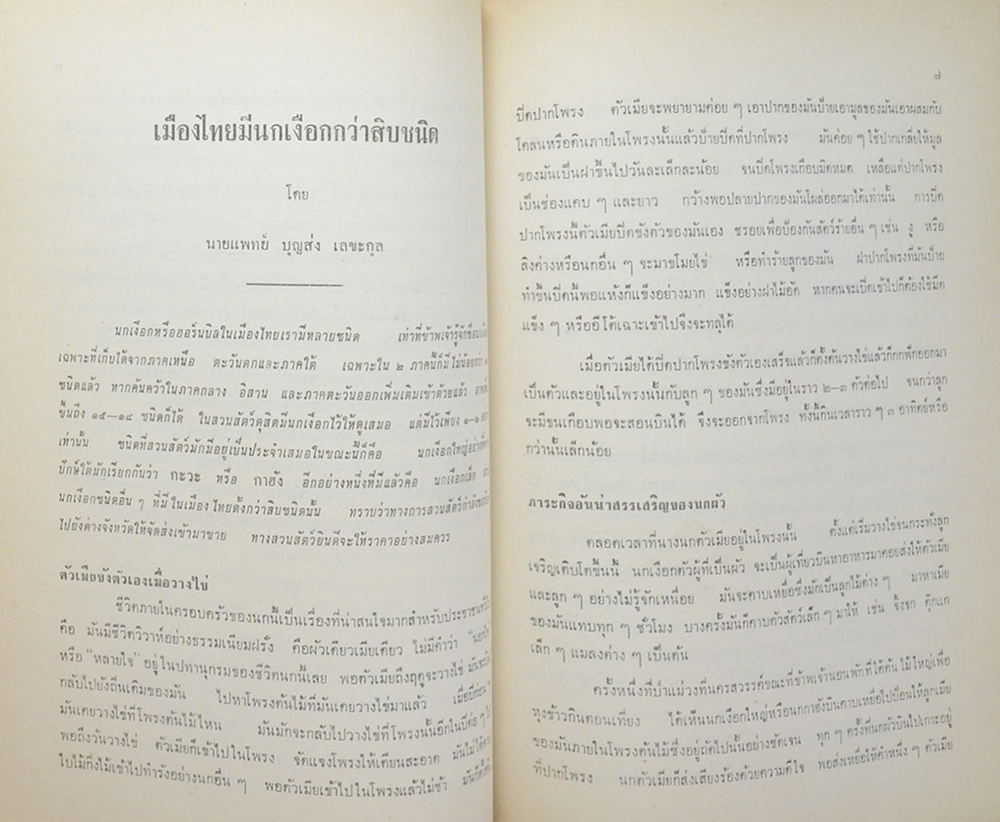 เมืองไทยมีนกเงือกกว่าสิบชนิด
โดย
นายแพทย์ บุญส่ง เลขะกุล
นกเงือกหรือฮอร์นบิลในเมืองไทยเรามีหลายชนิด เท่าที่ข้าพเจ้ารู้จัก
เฉพาะที่เก็บได้จากภาคเหนือ ตะวันตกและภาคใต้ เฉพาะใน ๒ ภาคนี้ก็มีไม่น้อยกว่า
ชนิดแล้ว หากค้นคว้าในภาคกลาง อิสาน และภาคตะวันออกเพิ่มเติมเข้าด้วยแล้ว
ขึ้นถึง ๑๕–๑๘ ชนิดก็ได้ ในสวนสัตว์ดุสิตมีนกเงือกไว้ให้ดูเสมอ แต่มีไว้เพียง ๑–๒
เท่านั้น ชนิดที่สวนสัตว์มักมีอยู่เป็นประจำเสมอในขณะนี้ก็คือ นกเงือกใหญ่
ปักษ์ใต้มักเรียกกันว่า กะวะ หรือ กาฮัง อีกอย่างหนึ่งที่มีแล้วคือ นกเงือกเล็ก
นกเงือกชนิดอื่น ๆ ที่มีในเมืองไทยตั้งกว่าสิบชนิดนั้น ทราบว่าทางการสวนสัตว์
ไปยังต่างจังหวัดให้จัดส่งเข้ามาขาย ทางสวนสัตว์ยินดีจะให้ราคาอย่างสมควร
ตัวเมียขังตัวเองเมื่อวางไข่
ชีวิตภายในครอบครัวของนกนี้เป็นเรื่องที่น่าสนใจมากสำหรับประชาชน
คือ มันมีชีวิตวิวาห์อย่างธรรมเนียมฝรั่ง คือผัวเดียวเมียเดียว ไม่มีคำว่า
หรือ "หลายใจ" อยู่ในปทานุกรมของชีวิตนกนี้เลย พอตัวเมียถึงฤดูจะวางไข่
กลับไปยังถิ่นเดิมของมัน ไปหาโพรงต้นไม้ที่มันเคยวางไข่มาแล้ว เมื่อปีก่อน
มันเคยวางไข่ที่โพรงต้นไม้ไหน มันมักจะกลับไปวางไข่ที่โพรงนั้นอีกในปีต่อ ๆ ไป
พอถึงวันวางไข่ ตัวเมียก็เข้าไปในโพรง จัดแจงโพรงให้เตียนสะอาด มันไม่ได้
ใบไม้กิ่งไม้เข้าไปทำรังอย่างนกอื่น ๆ พอตัวเมียเข้าไปในโพรงแล้วไม่ช้า
๗
ปิดปากโพรง ตัวเมียจะพยายามค่อย ๆ เอาปากของมันป้ายเอามูลของมันเอาผสมกับ
โคลนหรือดินภายในโพรงนั้นแล้วป้ายปิดที่ปากโพรง มันค่อย ๆ ใช้ปากเกลี่ยให้มูล
ของมันเป็นฝาขึ้นไปวันละเล็กละน้อย จนปิดโพรงเกือบมิดหมด เหลือแต่ปากโพรง
เป็นช่องแคบ ๆ และยาว กว้างพอปลายปากของมันโผล่ออกมาได้เท่านั้น การปิด
ปากโพรงนี้ตัวเมียปิดขังตัวของมันเอง ชรอยเพื่อป้องกันสัตว์ร้ายอื่น ๆ เช่น งู หรือ
ลิงค่างหรือนกอื่น ๆ จะมาขโมยไข่ หรือทำร้ายลูกของมัน ฝาปากโพรงที่มันป้าย
ทำขึ้นปิดนี้พอแห้งก็แข็งอย่างมาก แข็งอย่างฝาไม้อัด หากคนจะเปิดเข้าไปก็ต้องใช้มีด
แข็ง ๆ หรืออีโต้เฉาะเข้าไปจึงจะทลุได้
เมื่อตัวเมียได้ปิดปากโพรงขังตัวเองเสร็จแล้วก็ตั้งต้นวางไข่แล้วก็กกฟักออกมา
เป็นตัวและอยู่ในโพรงนั้นกับลูก ๆ ของมันซึ่งมีอยู่ในราว ๒–๓ ตัวต่อไป จนกว่าลูก
จะมีขนเกือบพอจะสอนบินได้ จึงจะออกจากโพรง ทั้งนี้กินเวลาราว ๆ ๓ อาทิตย์หรือ
กว่านั้นเล็กน้อย
ภาระกิจอันน่าสรรเสริญของนกผัว
ตลอดเวลาที่นางนกตัวเมียอยู่ในโพรงนั้น ตั้งแต่เริ่มวางไข่จนกระทั่งลูก
เจริญเติบโตขึ้นนี้ นกเงือกตัวผู้ที่เป็นผัว จะเป็นผู้เที่ยวบินหาอาหารมาคอยส่งให้ตัวเมีย
และลูก ๆ อย่างไม่รู้จักเหนื่อย มันจะคาบเหยื่อซึ่งมักเป็นลูกไม้ต่าง ๆ มาหาเมีย
ของมันแทบทุก ๆ ชั่วโมง บางครั้งมันก็คาบตัวสัตว์เล็ก ๆ มาให้ เช่น จิ้งจก ตุ๊กแก
เล็ก ๆ แมลงต่าง ๆ เป็นต้น
ครั้งหนึ่งที่ป่าแม่วงที่นครสวรรค์ขณะที่ข้าพเจ้านอนพักที่ใต้ต้นไม้ใหญ่เพื่อ
หุงข้าวกินตอนเที่ยง ได้เห็นนกเงือกใหญ่หรือนกกาฮังบินคาบเหยื่อไปป้อนให้ลูกเมีย
ของมันภายในโพรงต้นไม้ซึ่งอยู่ถัดไปนั้นอย่างชัดเจน ทุก ๆ ครั้งที่นกผัวบินไปเกาะอยู่
ที่ปากโพรง นกตัวเมียก็ส่งเสียงร้องด้วยความดีใจ พอส่งเหยื่อให้คำหนึ่ง ๆ ตัวเมีย